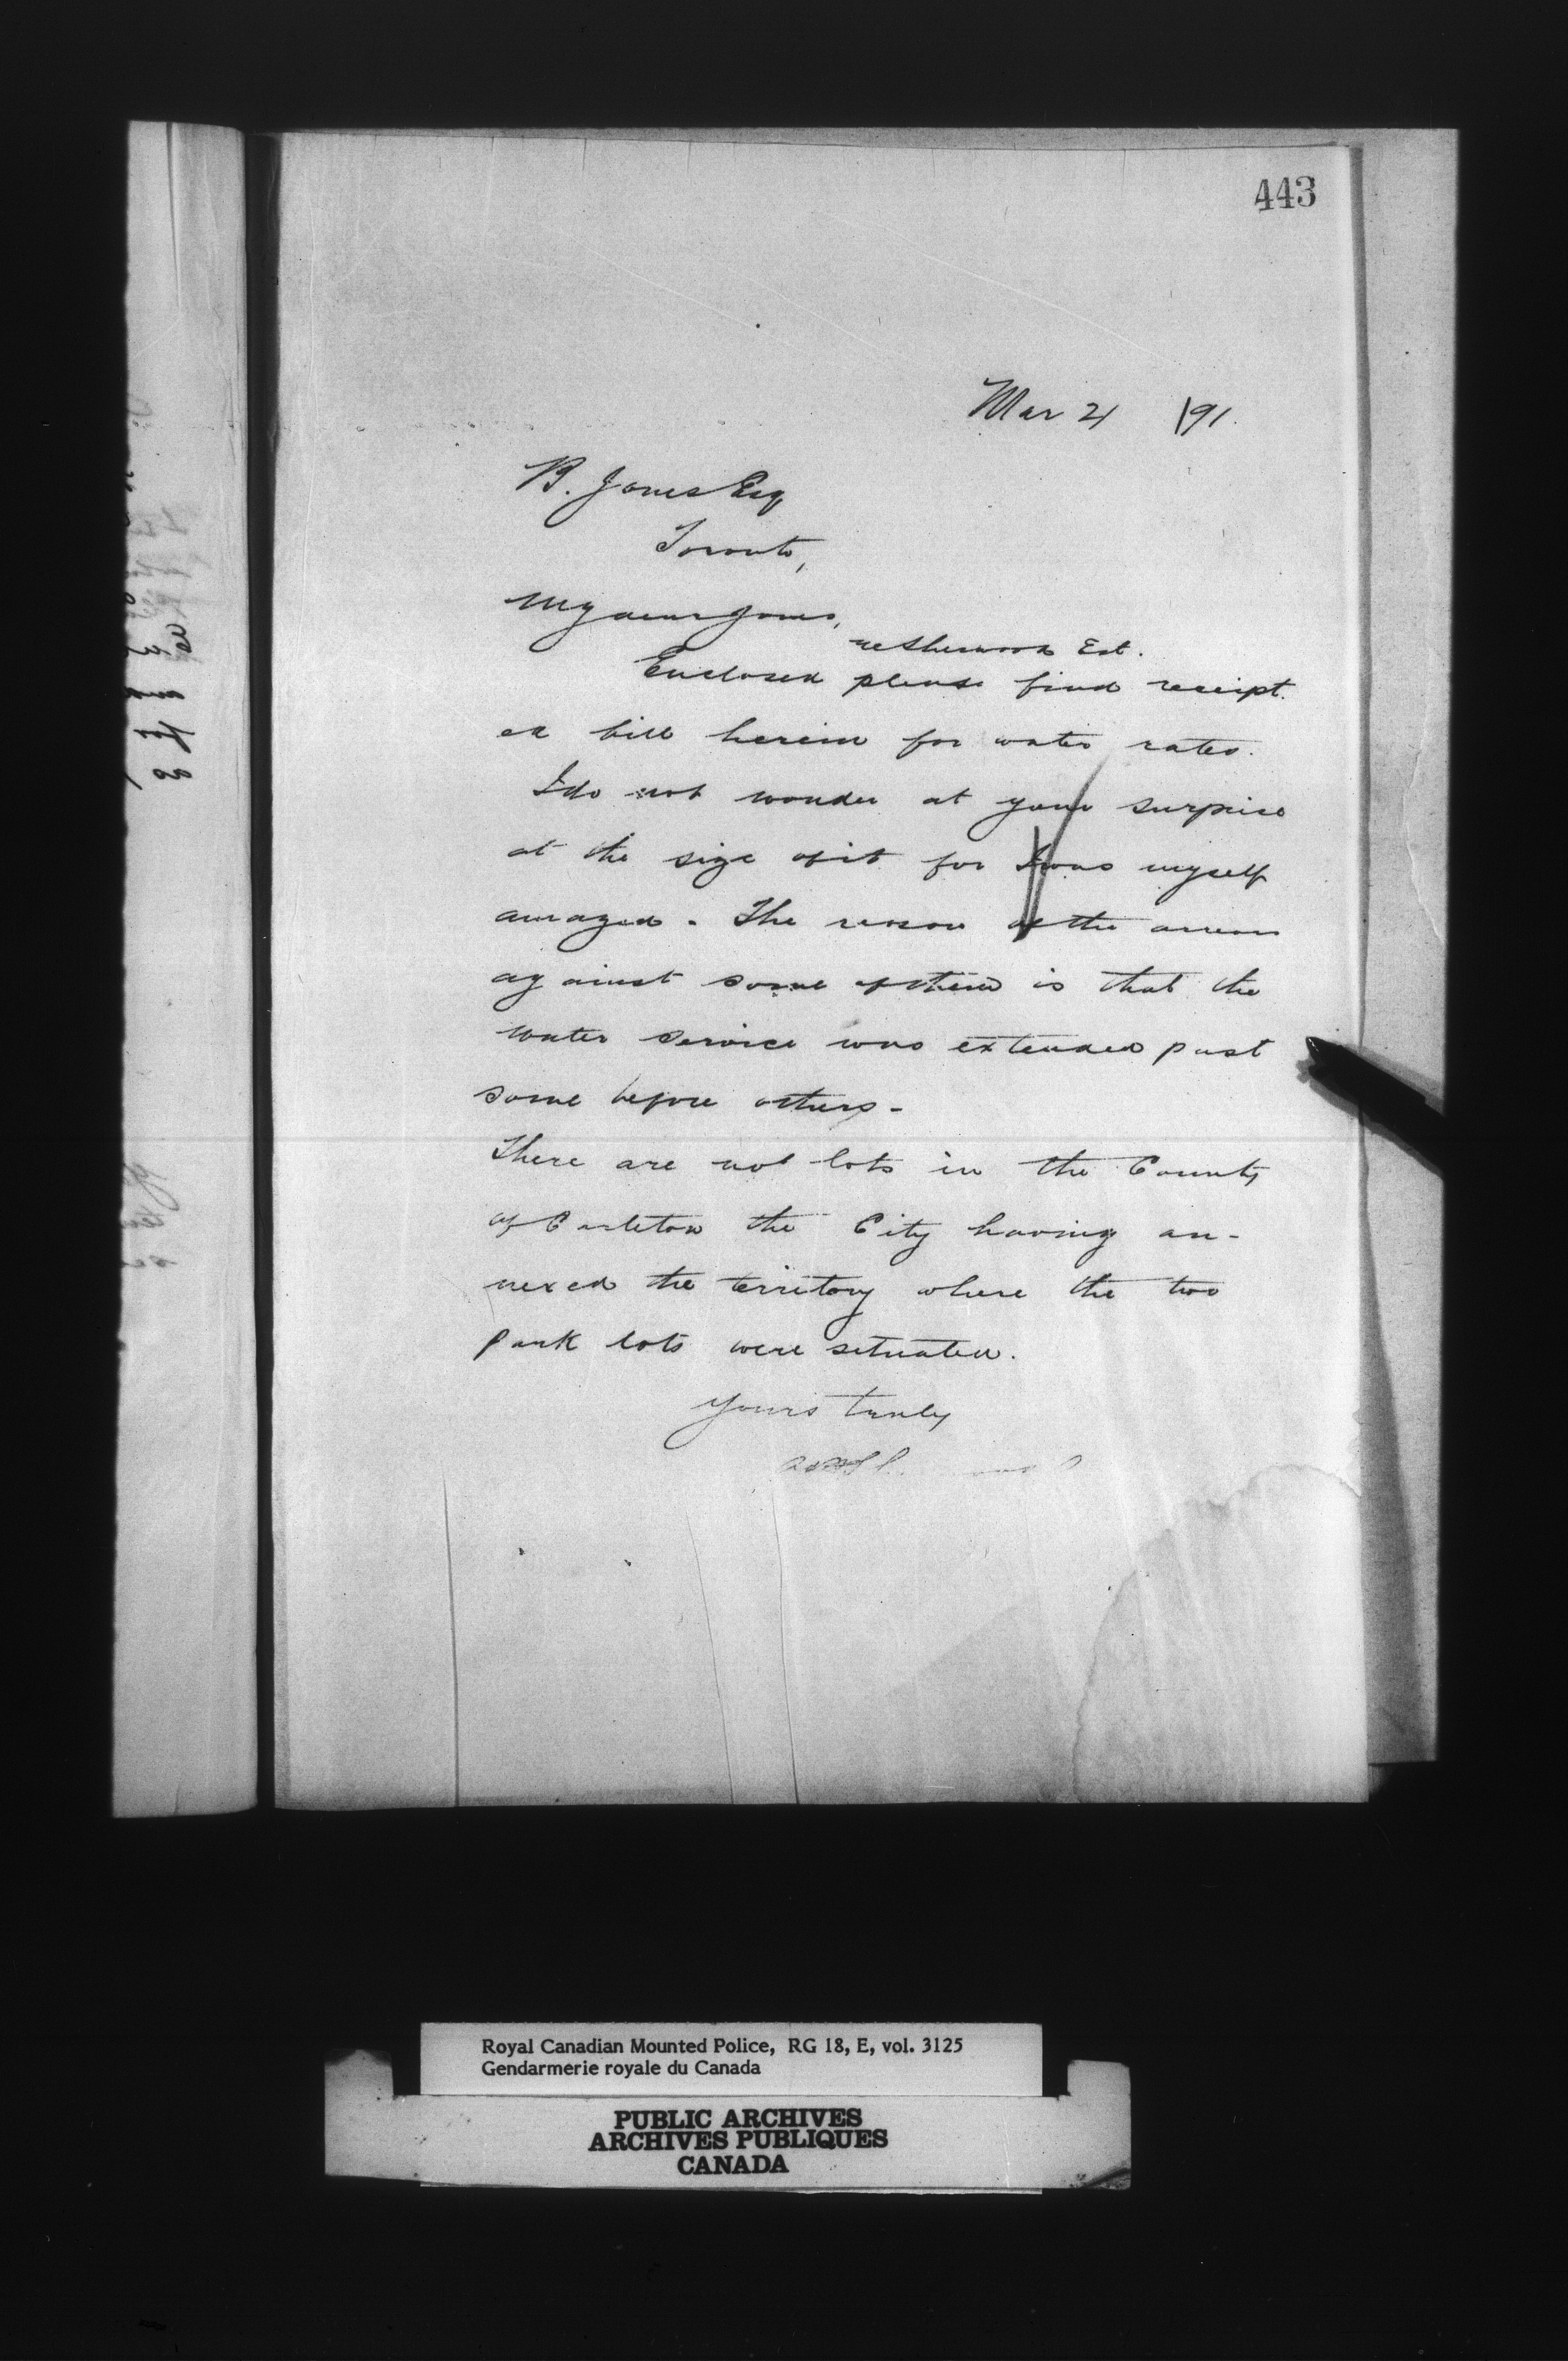 443
Mar 21 /91.
B. Jones Esq
Toronto,
My dear Jones,
re Sherwood Est.
Enclosed please find receipt.
ed bill herein for water rates.
I do not wonder at your surprise
at the size of it for I was myself
amazed. The reason of the arrears
against some of them is that the
water service was extended past
some before others -
There are not lots in the County
of Carleton the City having an-
nexed the territory where the two
park lots were situated.
Yours truly
Royal Canadian Mounted Police, RG 18, E, vol. 3125
Gendarmerie royale du Canada
PUBLIC ARCHIVES
ARCHIVES PUBLIQUES
CANADA